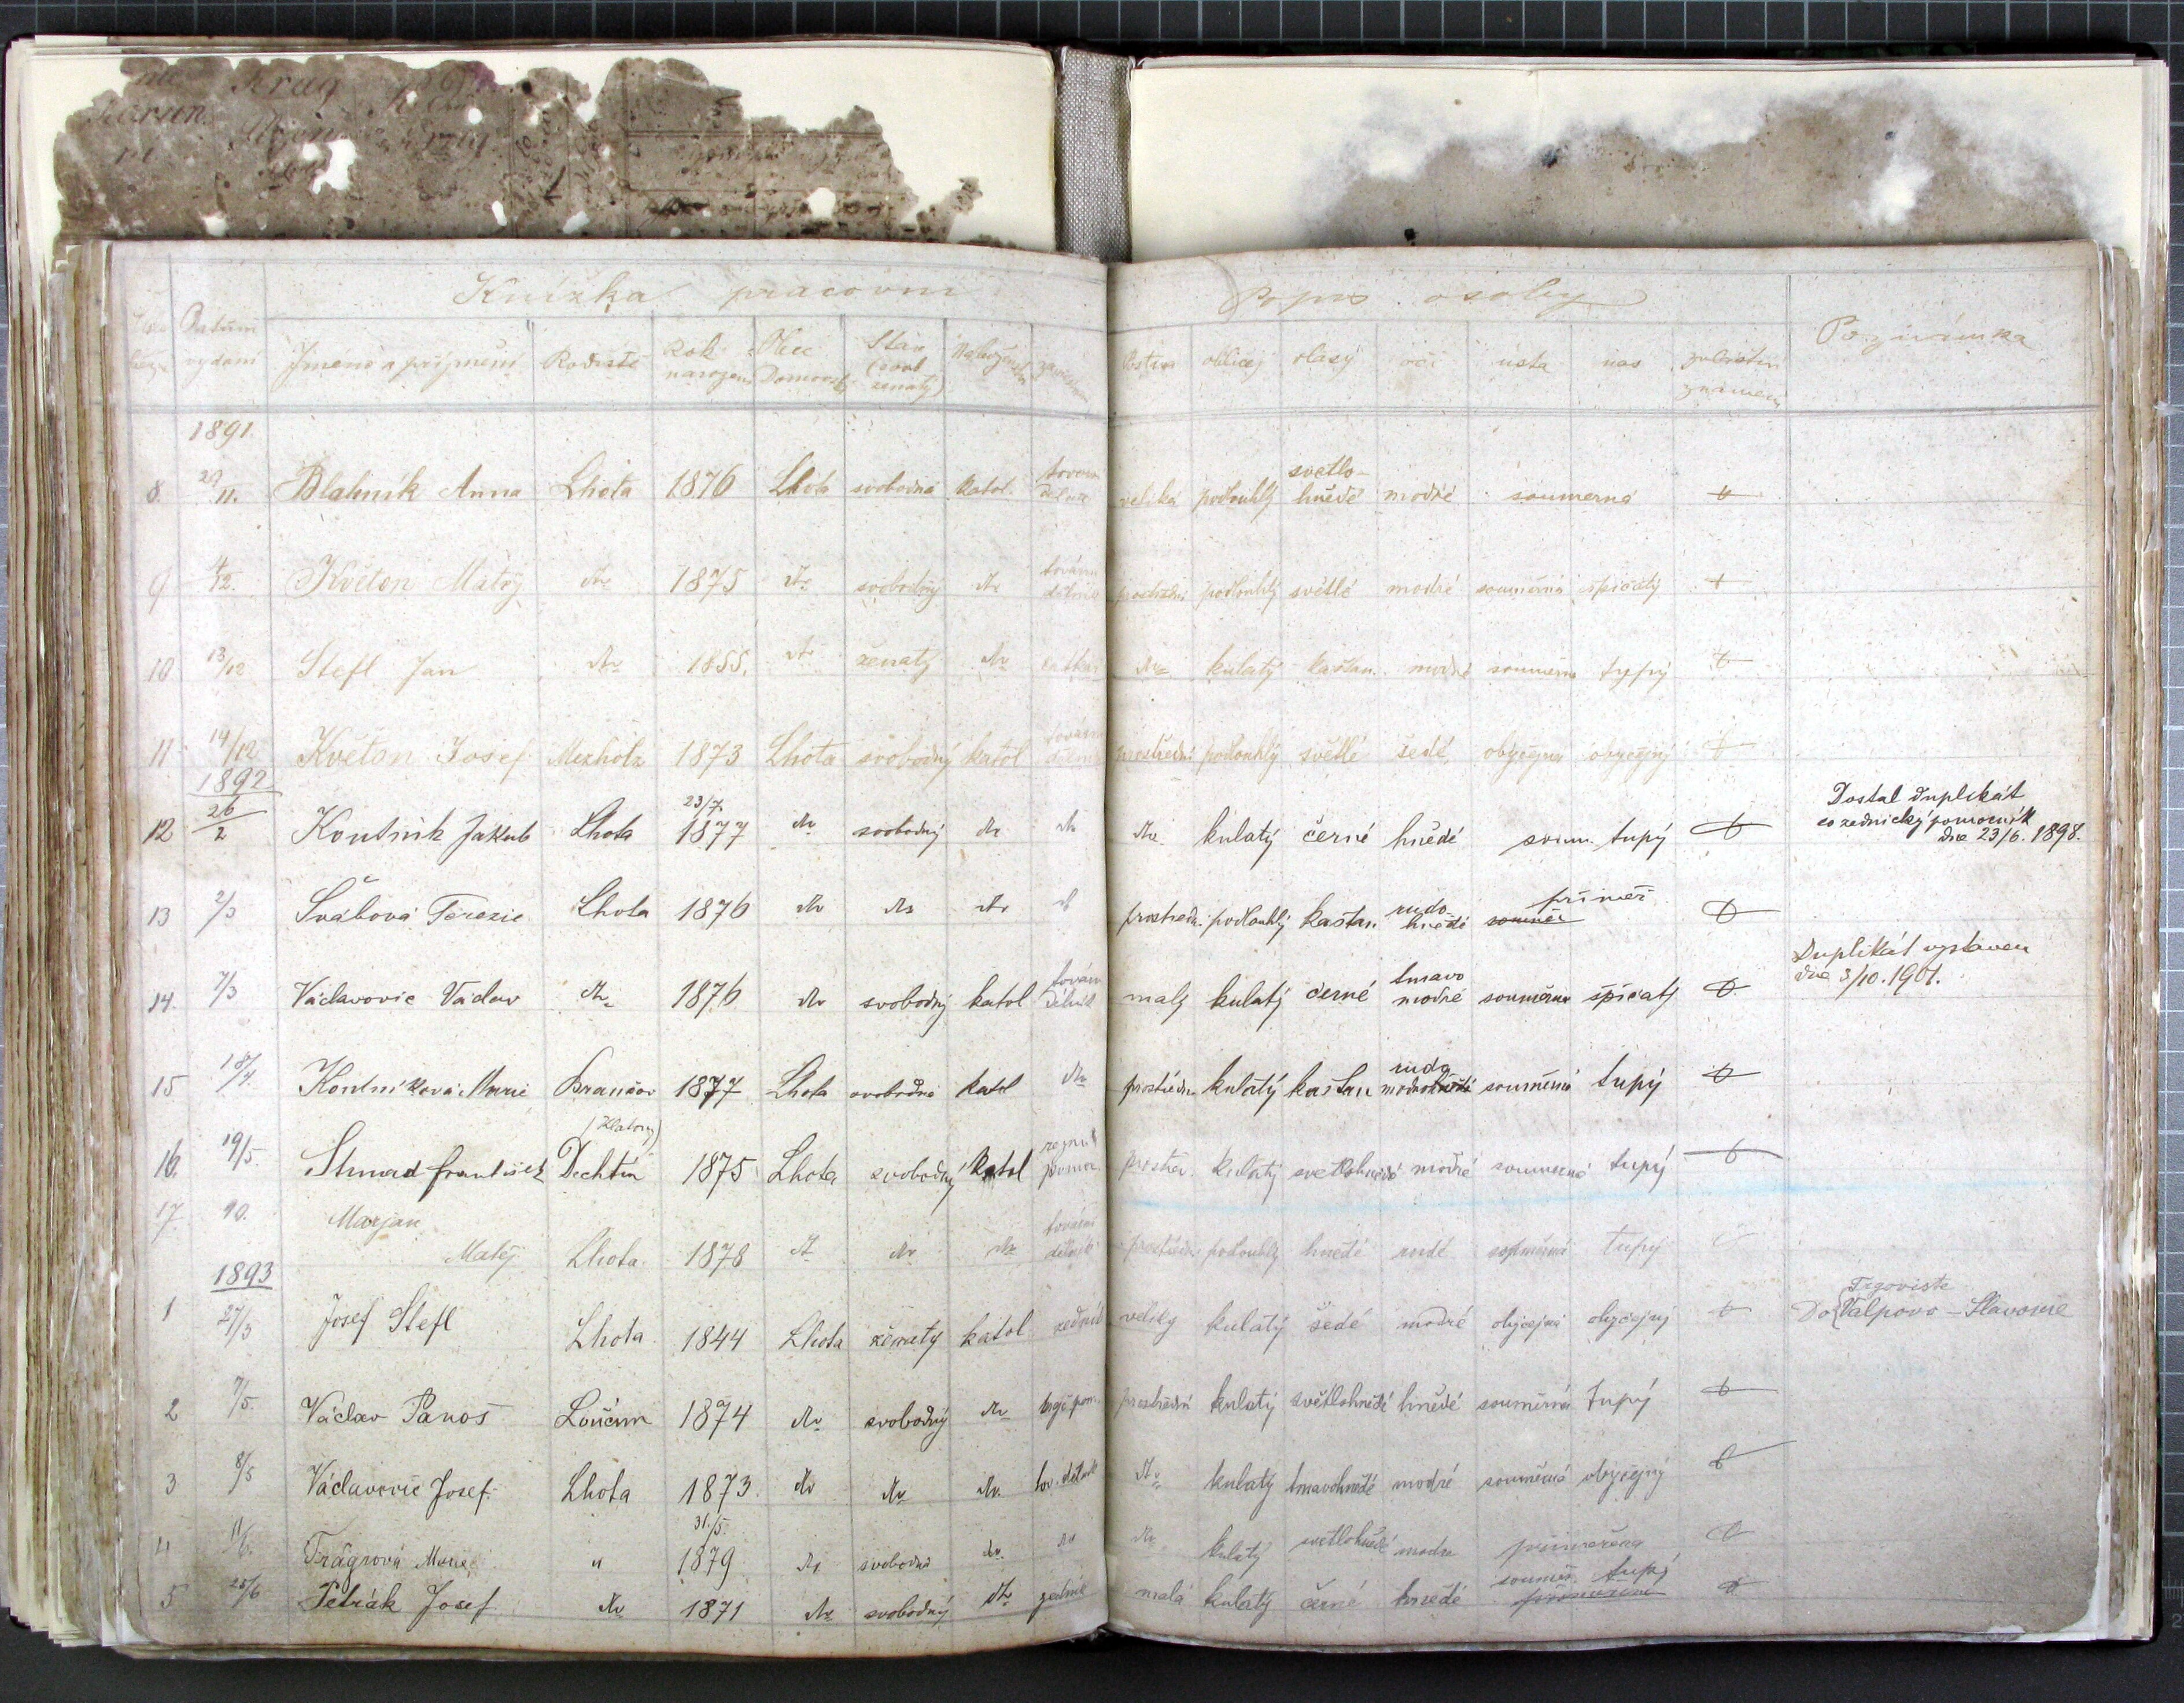 Knížka pracovní
Popis osoby
Datum vydání
Jmeno a příjmení
Rodiště
Rok narozen
Obec Domovsk
Stav (svob ženatý)
obličej
vlasy
oči
ústa
nos
zvláštní znamení
Poznámka
1891.
8. 11. Blahník Anna Lhota 1876 Lhota svobodná katol. veliká podlouhlý světlo-hnědé modré souměrná
9 4/12. Květon Matěj dto 1875 dto svobodný dto prostřední podlouhlý světlé modré souměrná špičatý
10 13/12 Štefl Jan dto 1855. dto ženatý dto dto kulatý kaštan. modré souměrná tupý
11 14/12 Květon Josef Mezholz 1873 Lhota svobodný katol prostřední podlouhlý světlé šedé obyčejná obyčejný
1892
12 26/2 Koutník Jakub Lhota 23/7. 1877 dto svobodný dto dto dto kulatý černé hnědé soum. tupý Dostal duplikát co zednický pomocník dne 23/6. 1898.
13 2/3 Švábová Terezie Lhota 1876 dto dto dto prostřed. podlouhlý kaštan rudo-hnědé souměr přiměř
14. 7/3 Václavovic Václav dto 1876 dto svobodný katol továrn dělník malý kulatý černé tmavo modré souměrná špičatý Duplikát vystaven dne 3/10. 1901.
15 18/4. Koutníková Marie Brančov 1877 Lhota svobodná katol dto prostředn. kulatý kaštan rudo souměrná tupý
16. 19/5. Strnad František Dechtín (Klatovy) 1875 Lhota svobodný katol prostřed. kulatý světlohnědé modré souměrná tupý
17. 10. Marjan Matěj Lhota 1878 dt dto dto tovární dělník prostředn. podlouhlý hnědé rudé souměrná tupý
1893
1 27/3 Josef Štefl Lhota 1844 Lhota ženatý katol zedník veliký kulatý šedé modré obyčejná obyčejný Do Trgoviste Valpovo - Slavonie
2 7/5. Václav Panoš Loučim 1874 dto svobodný dto prostřední kulatý světlohnědé hnědé souměrná tupý
3 8/5 Václavovic Josef Lhota 1873. dto dto dto tov. dělník dto kulatý tmavohnědé modré souměrná obyčejný
4 11/6. Trägrová Marie " 31./5. 1879 dto svobodná dto dto dto kulatý světlohnědé modré přiměřená
5 25/6 Petrák Josef dto 1871 dto svobodný dto zedník malá kulatý černé hnědé souměr. tupý přiměřená